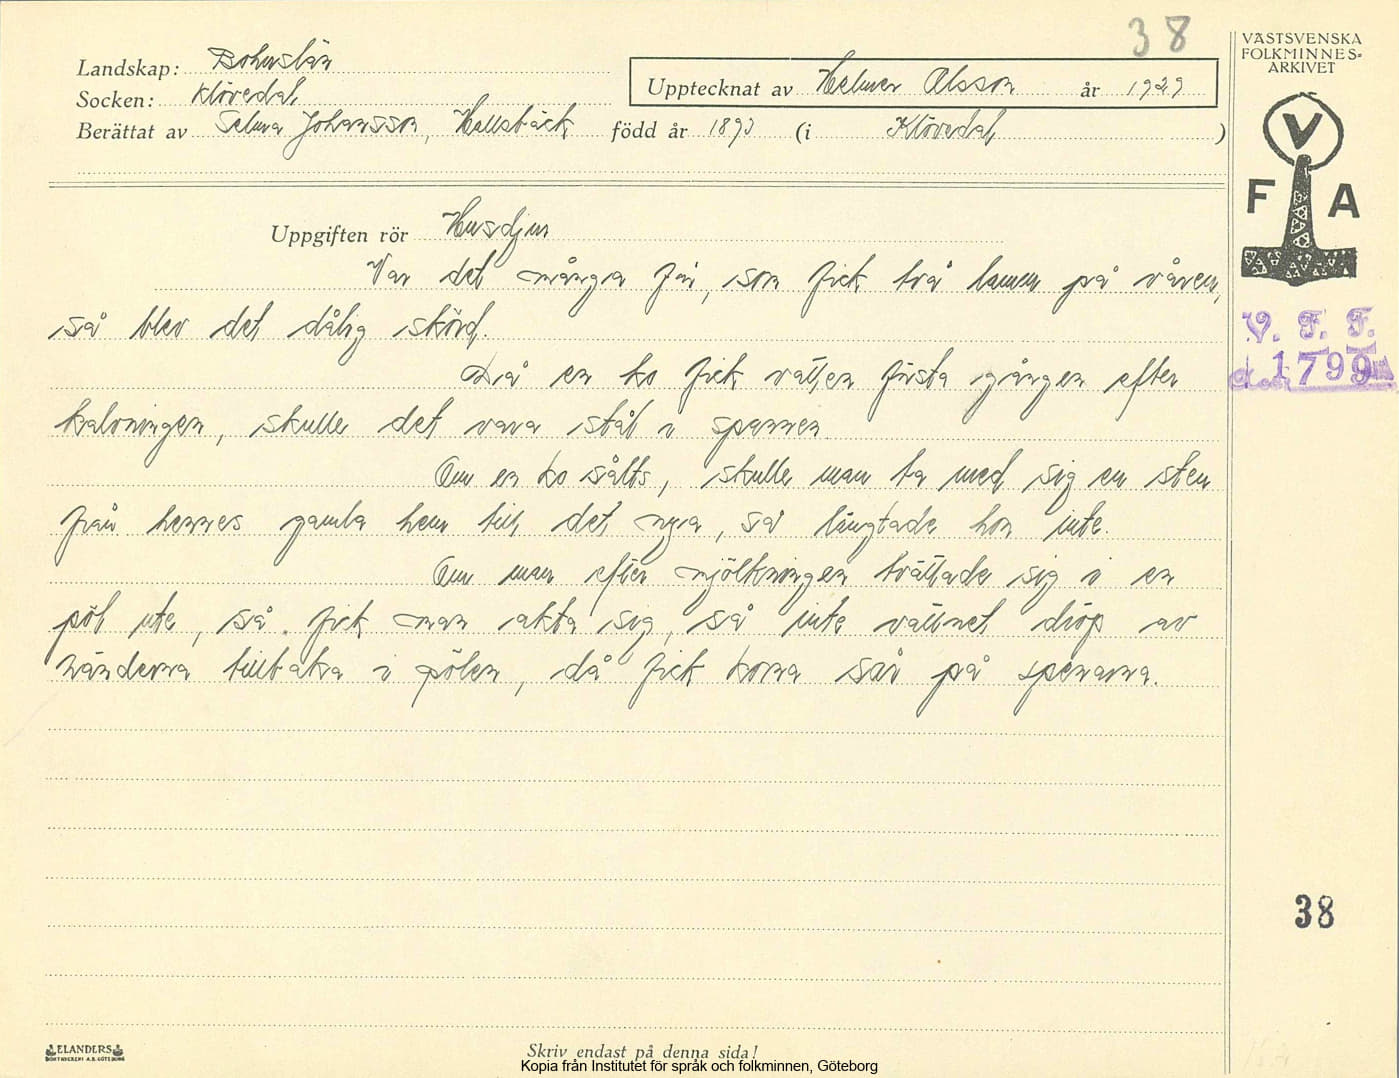 38
VÄSTSVENSKA
FOLKMINNES-
ARKIVET
Landskap: Bohuslän
Upptecknat av Helmer Olsson år 1929
Socken: Klövedal
Berättat av Selma Johansson, Hallsbäck född år 1893 (i Klövedal )
V
F A
Uppgiften rör Husdjur
Var det många får, som fick två lamm på våren,
så blev det dålig skörd.
Då en ko fick vatten första gången efter
kalvningen, skulle det vara stål i spannen.
Om en ko sålts, skulle man ta med sig en sten
från hennes gamla hem till det nya, så längtade hon inte.
Om man efter mjölkningen tvättade sig i en
pöl ute, så fick man akta sig, så inte vattnet dröp av
händerna tillbaka i pölen, då fick korna sår på spenarna.
V. F. F.
1799
38
ELANDERS
BOKTRYCKERI A.B. GÖTEBORG
Skriv endast på denna sida!
Kopia från Institutet för språk och folkminnen, Göteborg